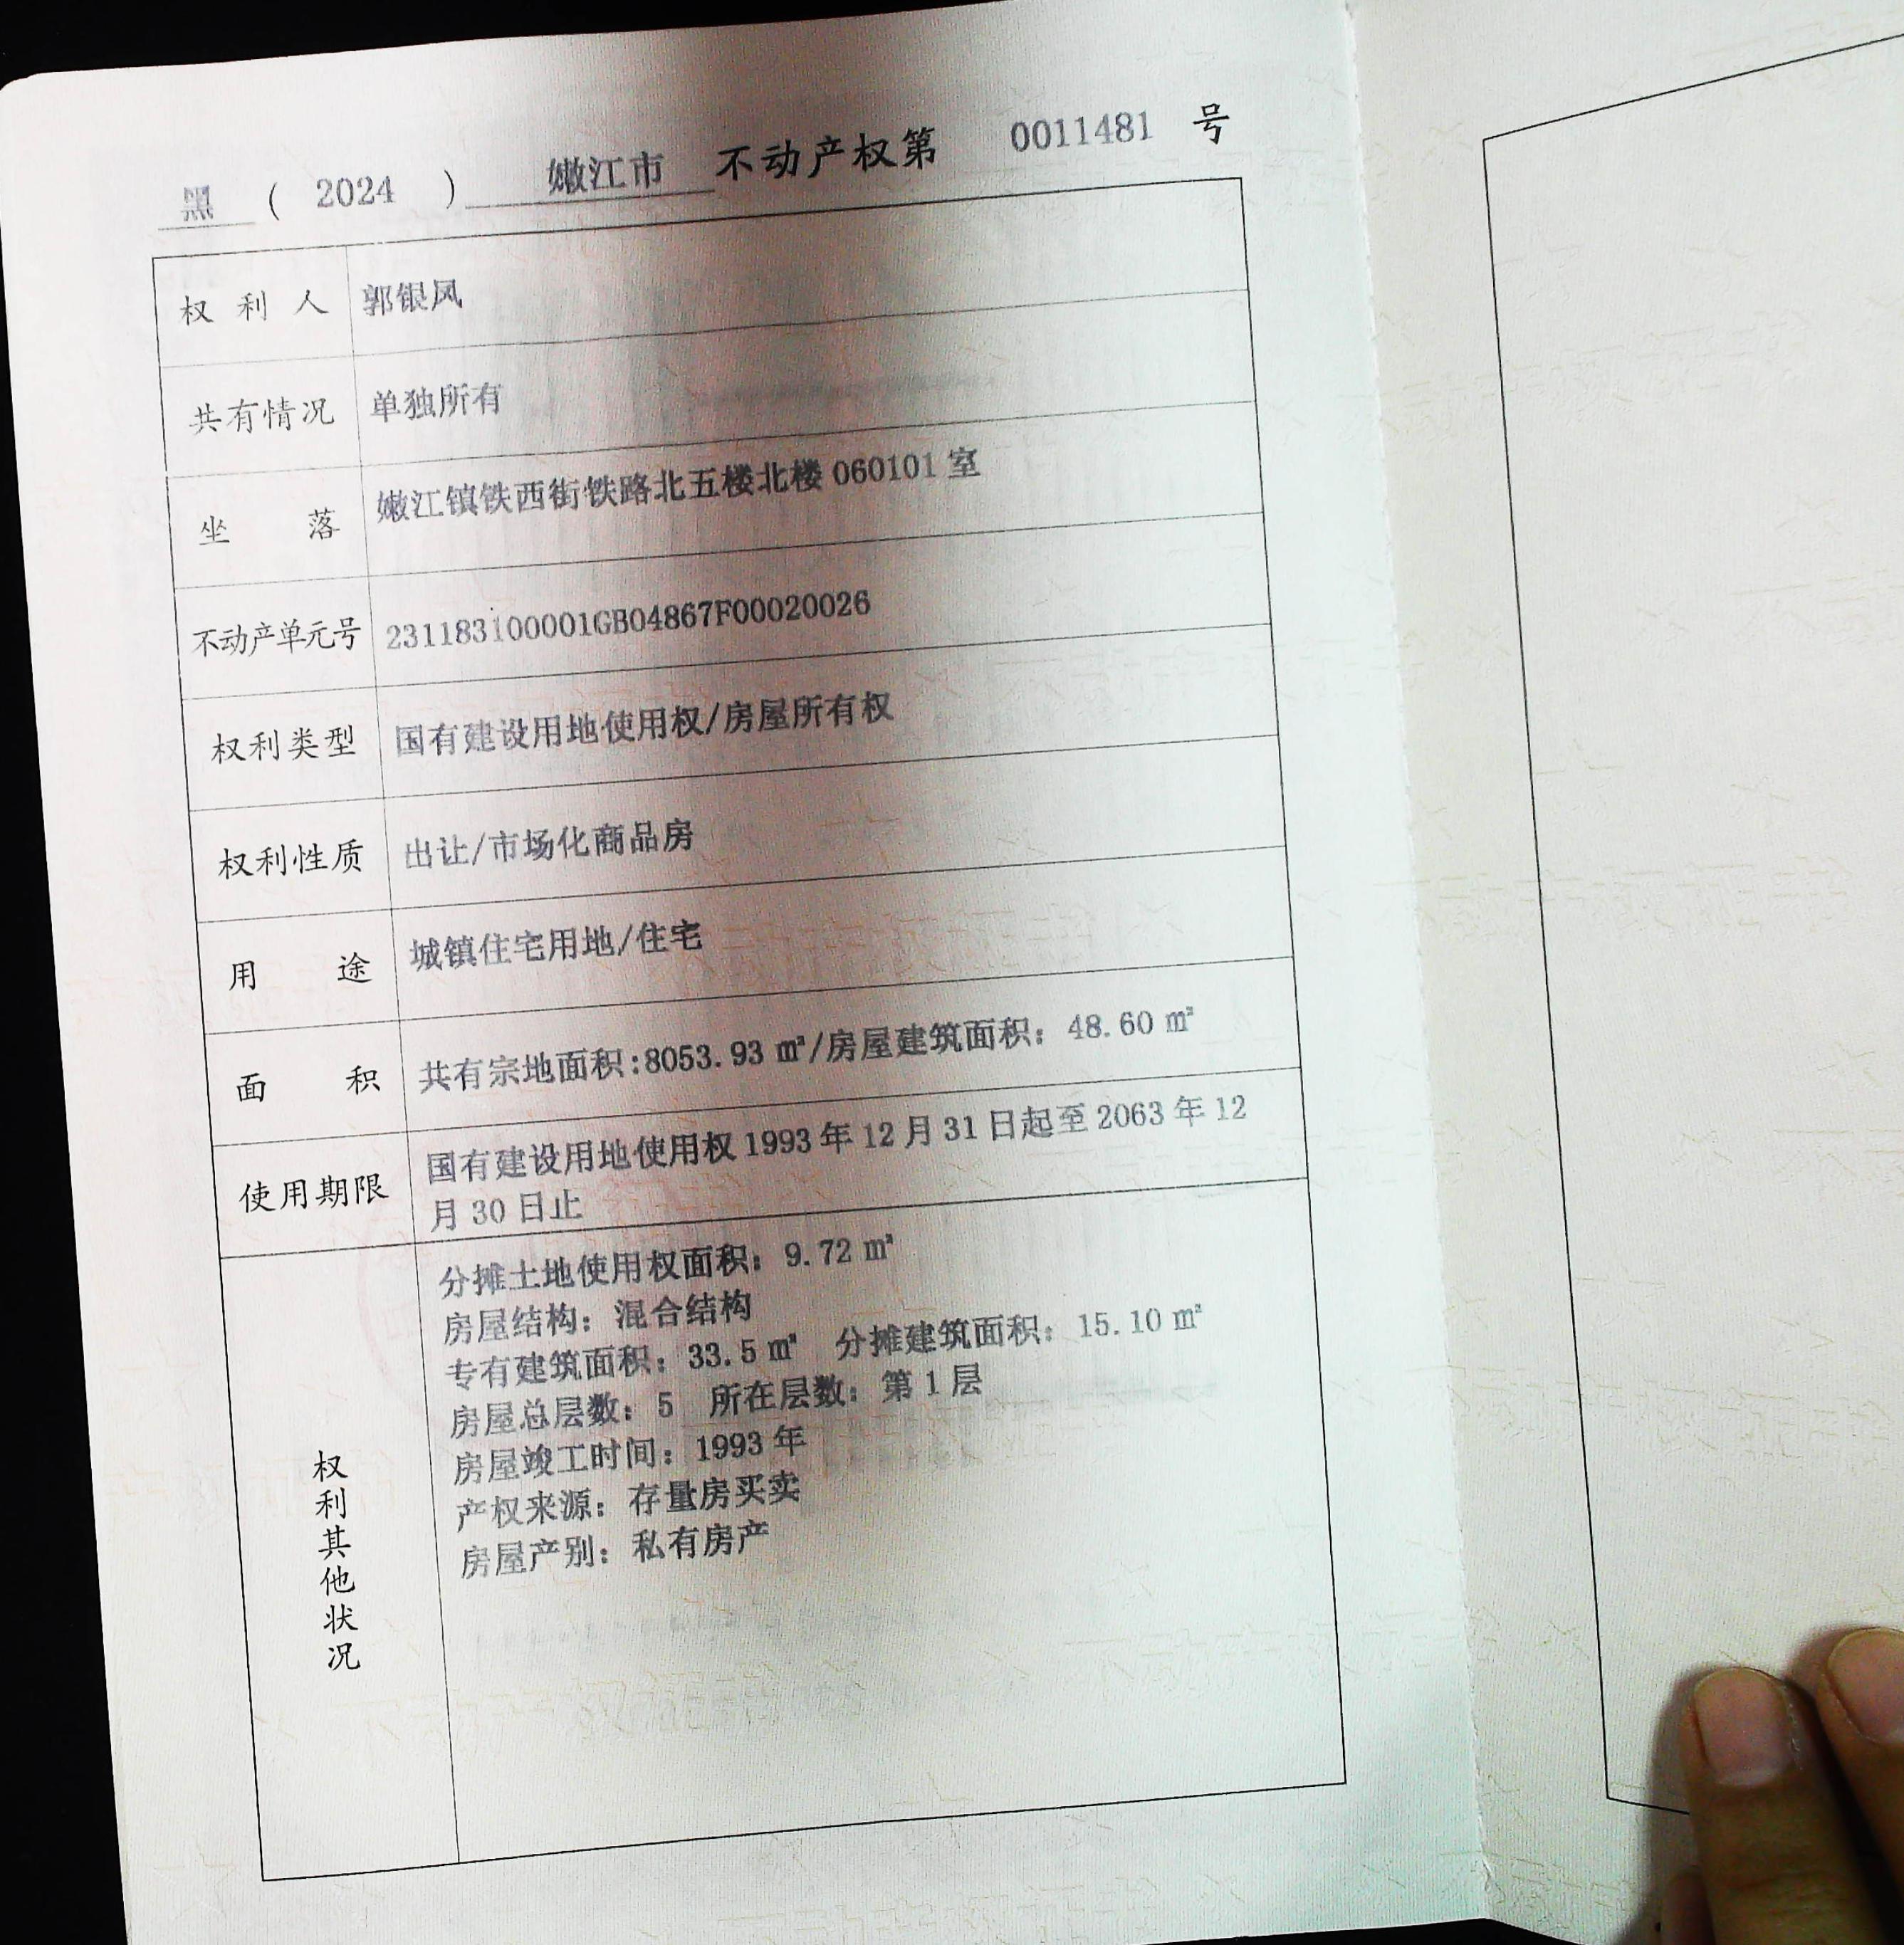 黑 ( 2024 ) 嫩江市 不动产权第 0011481 号
权利人 郭银凤
共有情况 单独所有
坐落 嫩江镇铁西街铁路北五楼北楼 060101 室
不动产单元号 231183100001GB04867F00020026
权利类型 国有建设用地使用权/房屋所有权
权利性质 出让/市场化商品房
用途 城镇住宅用地/住宅
面积 共有宗地面积:8053.93 ㎡/房屋建筑面积: 48.60 ㎡
使用期限 国有建设用地使用权 1993 年 12 月 31 日起至 2063 年 12
月 30 日止
权利其他状况
分摊土地使用权面积: 9.72 ㎡
房屋结构: 混合结构
专有建筑面积: 33.5 ㎡ 分摊建筑面积: 15.10 ㎡
房屋总层数: 5 所在层数: 第 1 层
房屋竣工时间: 1993 年
产权来源: 存量房买卖
房屋产别: 私有房产